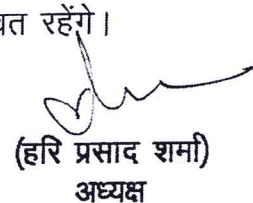 रहेंगे।
(हरि प्रसाद शर्मा)
अध्यक्ष